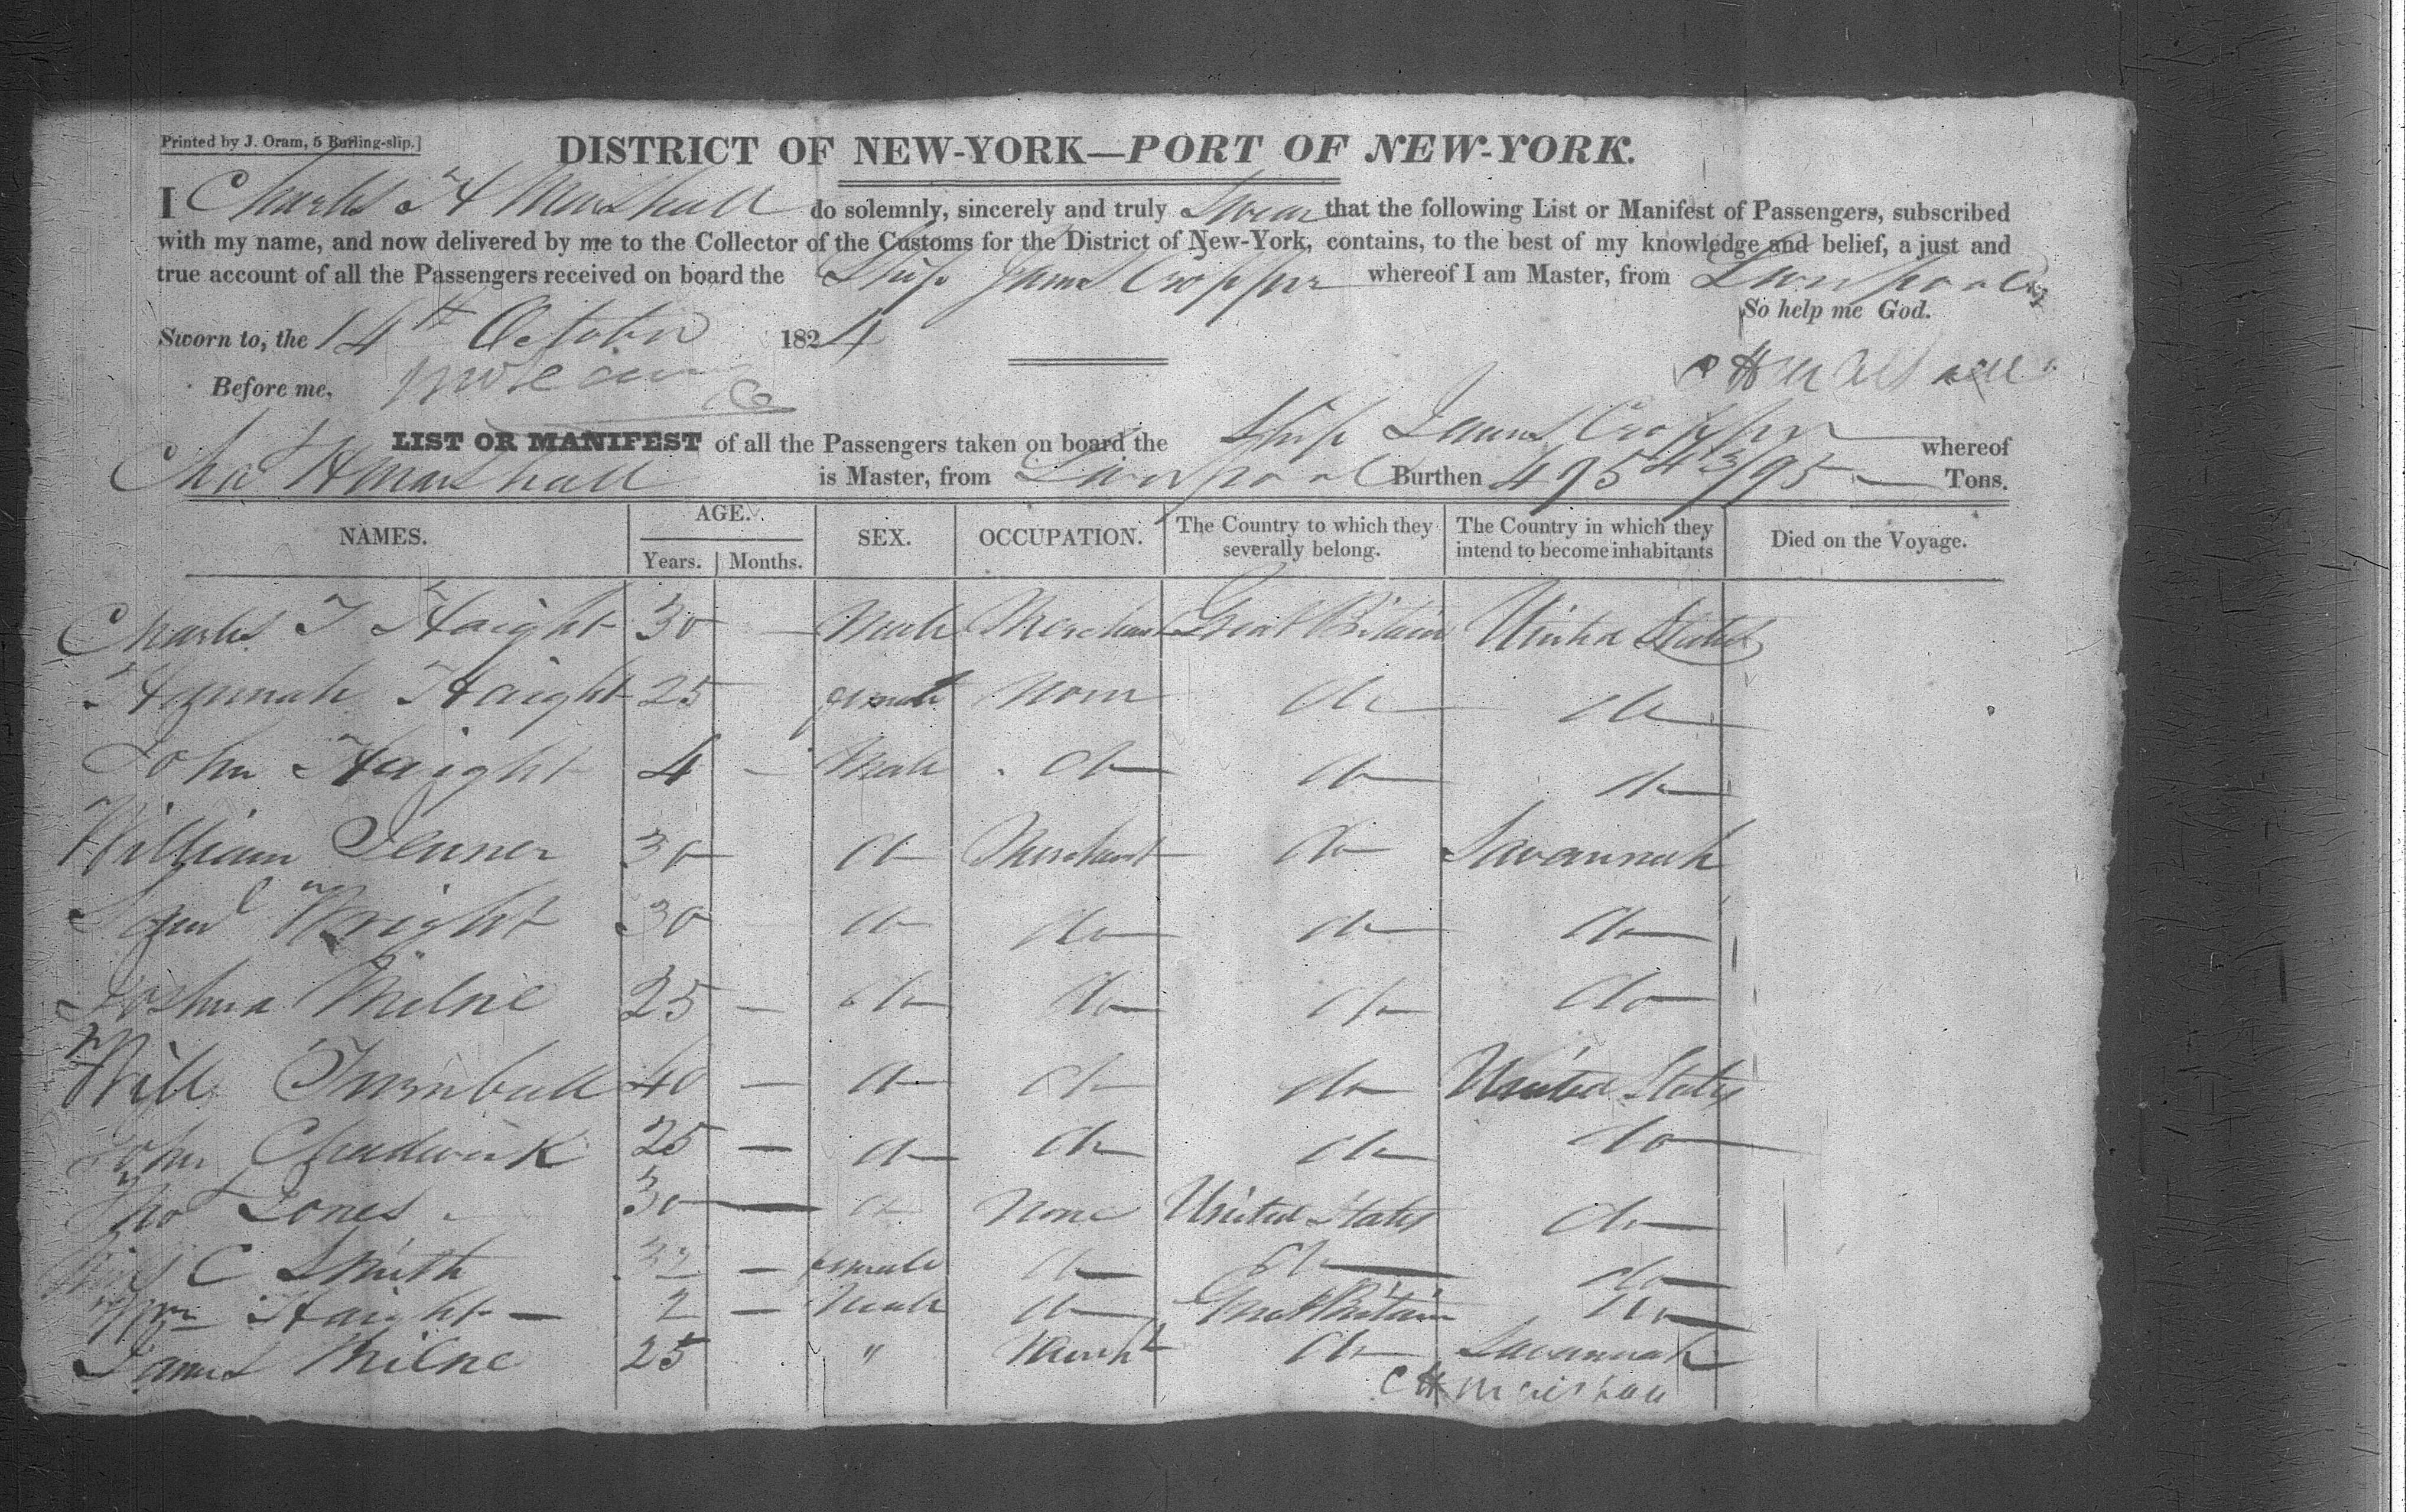 Printed by J. Oram, 5 Burling-slip.]
DISTRICT OF NEW-YORK—PORT OF NEW-YORK.
I Charles H Marshall do solemnly, sincerely and truly Swear that the following List or Manifest of Passengers, subscribed
with my name, and now delivered by me to the Collector of the Customs for the District of New-York, contains, to the best of my knowledge and belief, a just and
true account of all the Passengers received on board the Ship James Cropper whereof I am Master, from Liverpool
So help me God.
Sworn to, the 14th October 1824
C H Marshall
Before me,
LIST OR MANIFEST of all the Passengers taken on board the Ship James Cropper whereof
Chas H Marshall is Master, from Liverpool Burthen 495 43/95 Tons.
NAMES. AGE. SEX. OCCUPATION. The Country to which they severally belong. The Country in which they intend to become inhabitants Died on the Voyage.
Years. Months.
Charles T Haight 30 — Male Merchant Great Britain United States
Hannah Haight 25 female None do do
John Haight 4 — Male do do do
William Jenner 30 do Merchant do Savannah
Saml Wright 30 do do do do
Joshua Milne 25 — do do do do
Will Turnbull 40 — do do do United States
John Chadwick 25 — do do do do
Thos Jones 30 — do None United States do
C Smith 32 — female do do do
Wm Haight — 2 — Male do Great Britain do
James Milne 25 " Mercht do Savannah
C H Marshall